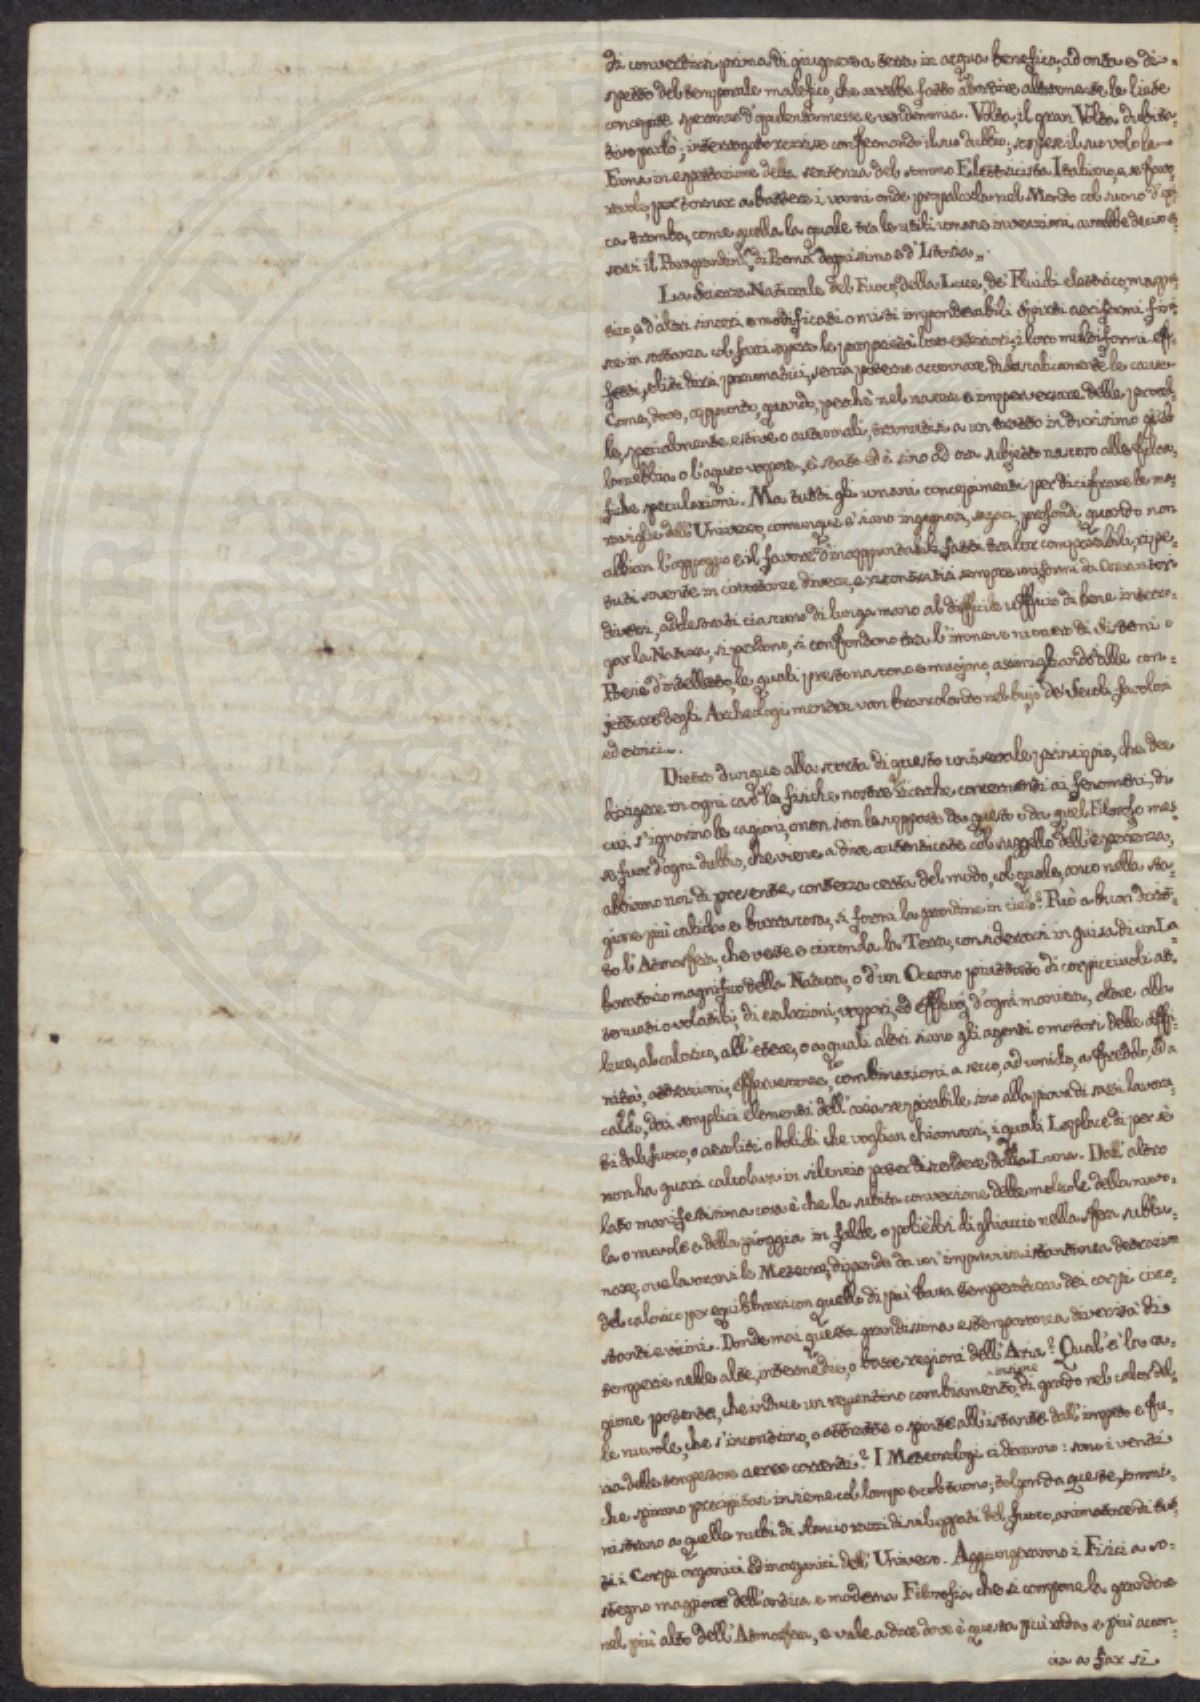 di convertirsi prima di giugnere a terra in acqua benefica, ad onta e di-
spetto del temporale malefico, che avrebbe fatto abortire altramente le liete
concepute speranze d'opulenta messe e vendemmia. Volta, il gran Volta dubita-
tivo parlò; interrogato rescrisse confermando il suo dubbio; sospese il suo volo la
Fama in espettazione della sentenza del sommo Elettricista Italiano, a se favo-
revole, per tornar a battere i vanni onde propalarla nel Mondo col suono d'
ca tromba, come quella la quale tra le utili umane invenzioni avrebbe
di Poema degnissimo e d'Istoria„.
La Scienza Naturale del Fuoco, della Luce, de' Fluidi elettrico, magne-
tico, e d'altri sinceri o modificati o misti imponderabili Spirti aeriformi
se in sostanza col farci aperte le proprietà loro esteriori, i loro multiformi ef-
fetti, pneumatici, senza poterne accennare le cause.
Come, dove, quando, perchè nel nascere e imperversare delle procel-
le, specialmente estive o autunnali, tramutisi a un tratto in durissimo gielo
la nebbia o l'aqueo vapore, è stato ed è sino ad ora subjetto alle filoso-
fiche speculazioni. Ma tutti gli umani concepimenti per dicifrare le ma-
raviglie dell'Universo, comunque e' siano ingegnosi, sagaci, profondi, quando non
abbian l'appoggio e il favore d'inoppugnabili fatti tra lor compatibili, ripe-
tuti sovente in circostanze diverse, e riscontrati sempre uniformi da Osservatori
diversi, addestrati ciascuno di lunga mano al difficile uffizio di bene interro-
gar la Natura, si perdono, si confondono tra l'immenso numero di Sistemi o
Poesie d'intelletto, le quali presto nascono e muojono, assomigliando alle con-
jetture degli Archeologi mentre van brancolando nel bujo de' Secoli favolosi
ed eroici.
Dietro dunque alla scorta di questo universale principio, che dee
dirigere in ogni caso le fisiche nostre ricerche concernenti ai fenomeni, di
cui s'ignorino le cagioni, o non sian le supposte da questo o da quel Filosofo mes-
se fuor d'ogni dubbio, che viene a dire autenticate col suggello dell'esperienza,
abbiamo noi di presente contezza certa del modo, col quale, anco nella sta-
gione più calida e burrascosa, si formi la grandine in cielo? Può a buon dirit-
to l'Atmosfera, che veste e circonda la Terra, considerarsi in guisa di un La-
boratorio magnifico della Natura, o d'un Oceano piuttosto di corpicciuoli at-
tenuati o volatili, di esalazioni, vapori, ed effluvj d'ogni maniera, oltre alla
luce, al calorico, all'etere, o a quali altri siano gli agenti o motori delle affi-
nità, attrazioni, effervescenze, combinazioni a secco, ad umido, a freddo, ed a
caldo, dai semplici elementi dell'aria respirabile sino alla prova di sassi lavora-
ti dal fuoco, o aeroliti o bolidi che voglian chiamarsi, i quali Laplace di per sè
non ha guari calcolava in silenzio poter discendere dalla Luna. Dall'altro
lato manifestissima cosa è che la subita conversione delle molecole della nuvo-
la o nuvole e della pioggia in falde o poliedri di ghiaccio nella sfera sublu-
nare, ove lavoransi le Meteore, dipenda da un'improvvisa istantanea detrazione
del calorico per equilibrarsi con quello di più bassa temperatura dei corpi circo-
stanti e vicini. Donde mai questa grandissima e estemporanea diversità di
temperie nelle alte, intermedie, o basse regioni dell'Aria? Qual'è la ca-
gione potente, che induce un repentino cambiamento insigne di grado nel calor del-
le nuvole, che s'incontrino, o attratte o spinte all'istante dall'impeto e fu-
ria delle tempestose aeree correnti? I Meteorologi ci diranno: sono i venti
che spirano precipitosi insieme col lampo e col tuono; tolgon da queste, sommi-
nistrano a quelle nubi di slancio razzi disviluppati del fuoco, animatore di tut-
ti i Corpi organici ed inorganici dell'Universo. Aggiungeranno i Fisici a so-
stegno maggiore dell'antica e moderna Filosofia che si compone la grandine
nel più alto dell'Atmosfera, e vale a dire dove è questa più rada e più accon-
cia a far sì